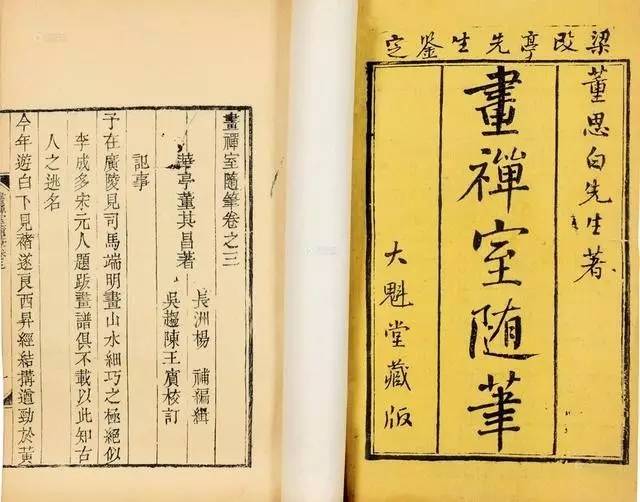 梁改亭先生鉴定
董思白先生著
畫禪室随筆
大魁堂藏版
畫禪室随筆卷之三
華亭董其昌著
長洲楊 補編緝
吳趨陳王賓校訂
記事
子在廣陵見司馬端明畫山水細巧之極絕似
李成多宋元人題跋畫譜俱不載以此知古
人之逃名
今年遊白下見褚遂良西昇經結搆遒勁於黃